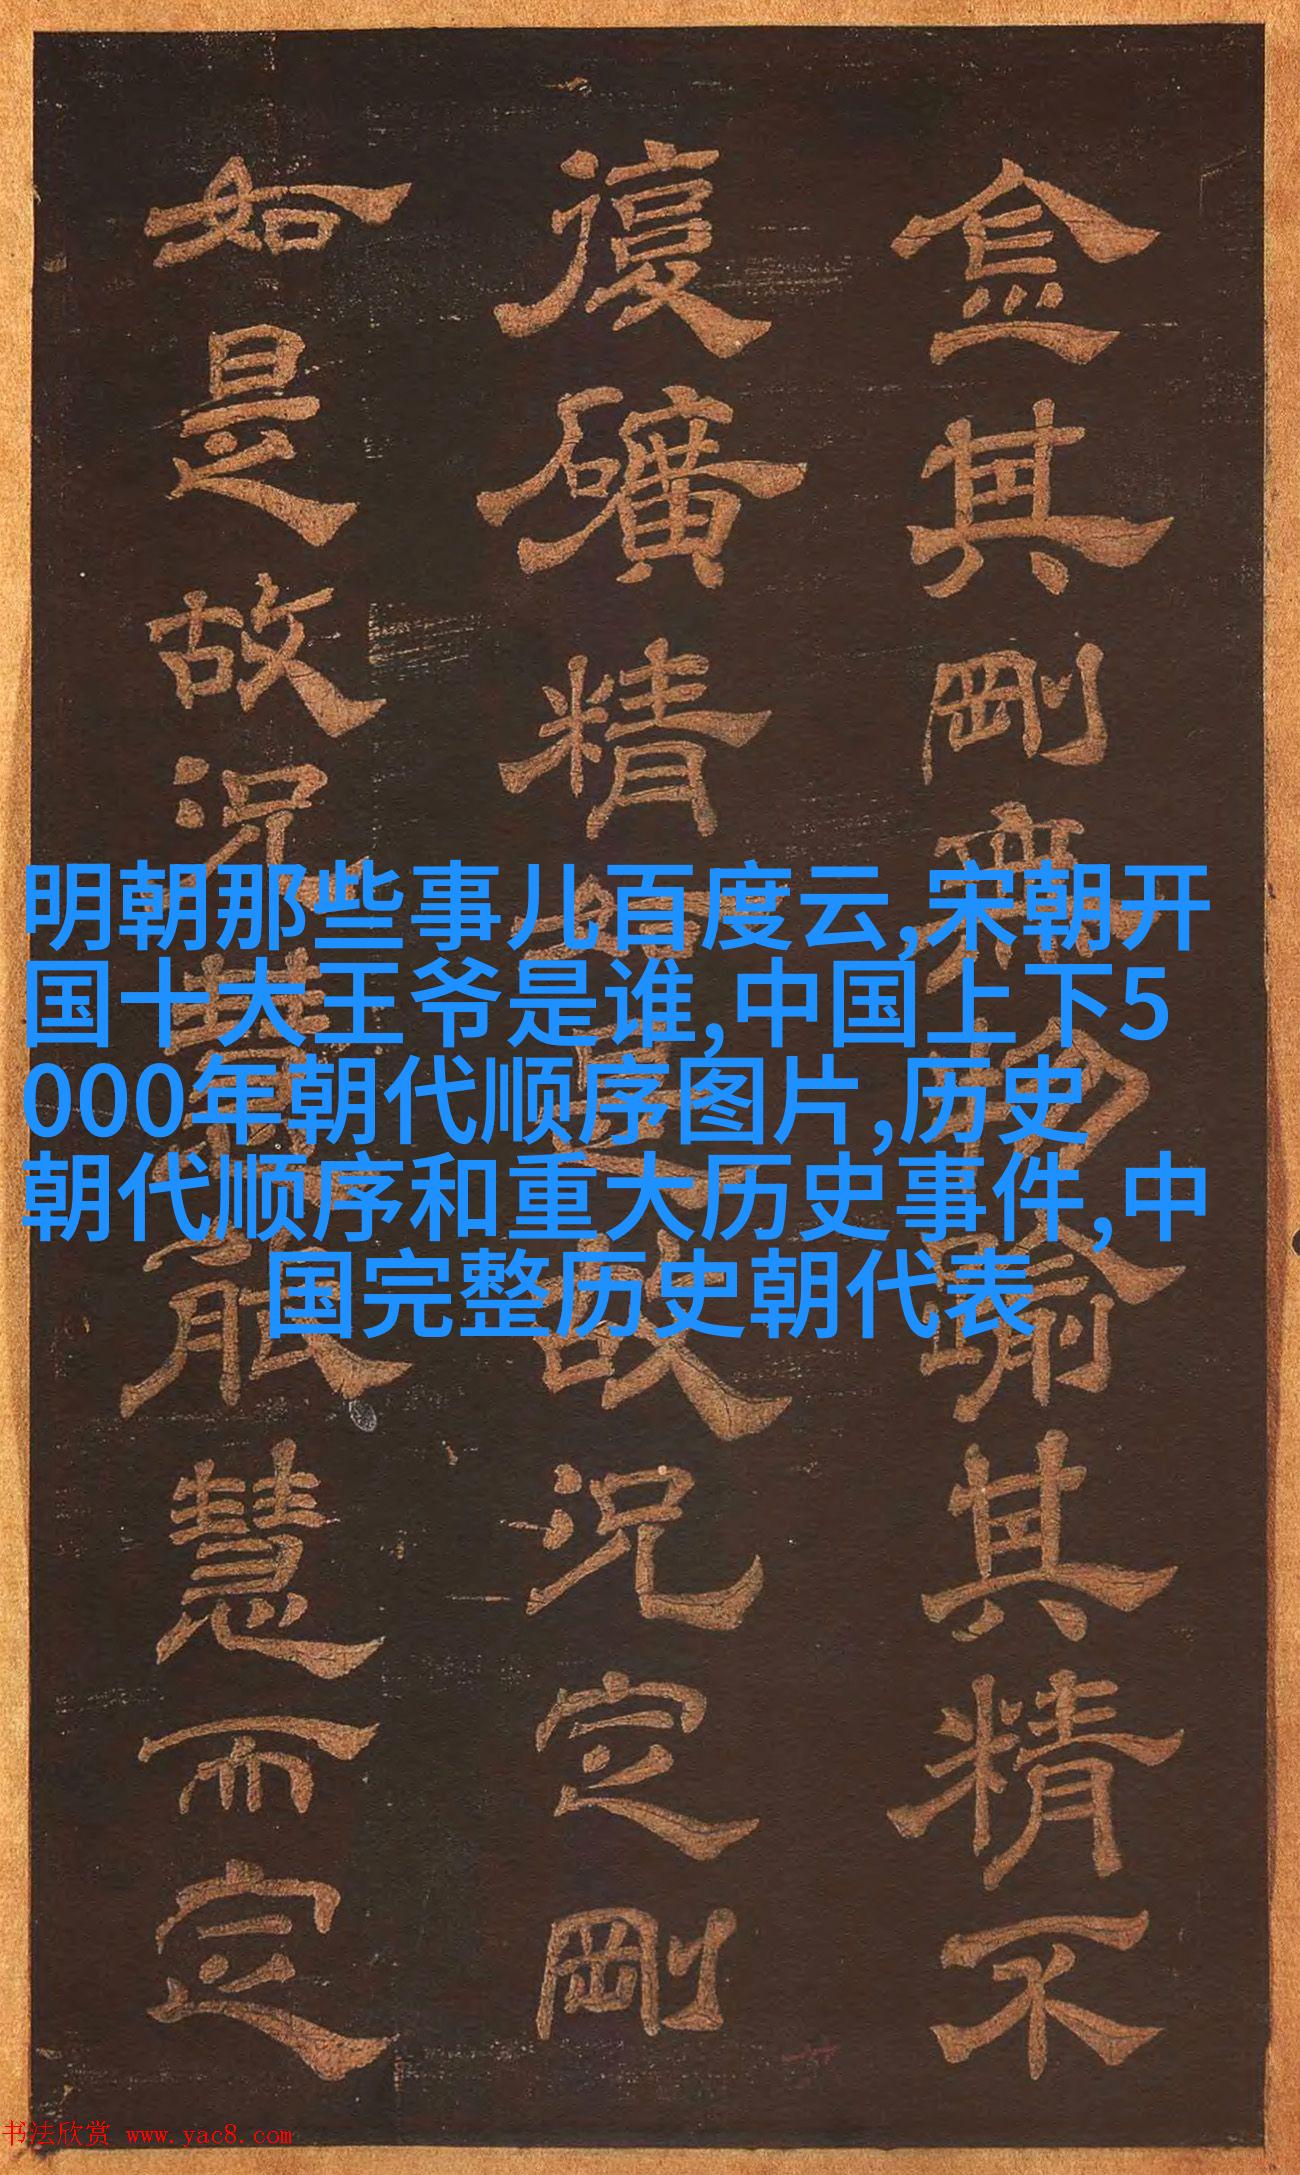 金其剛無物踰其精不
復礦精故況定剛
如是故況慧能慧而定
明朝那些事儿百度云,宋朝开
国十大王爷是谁,中国上下5
000年朝代顺序图片,历史
朝代顺序和重大历史事件,中
国完整历史朝代表
书法欣赏 www.yac8.com